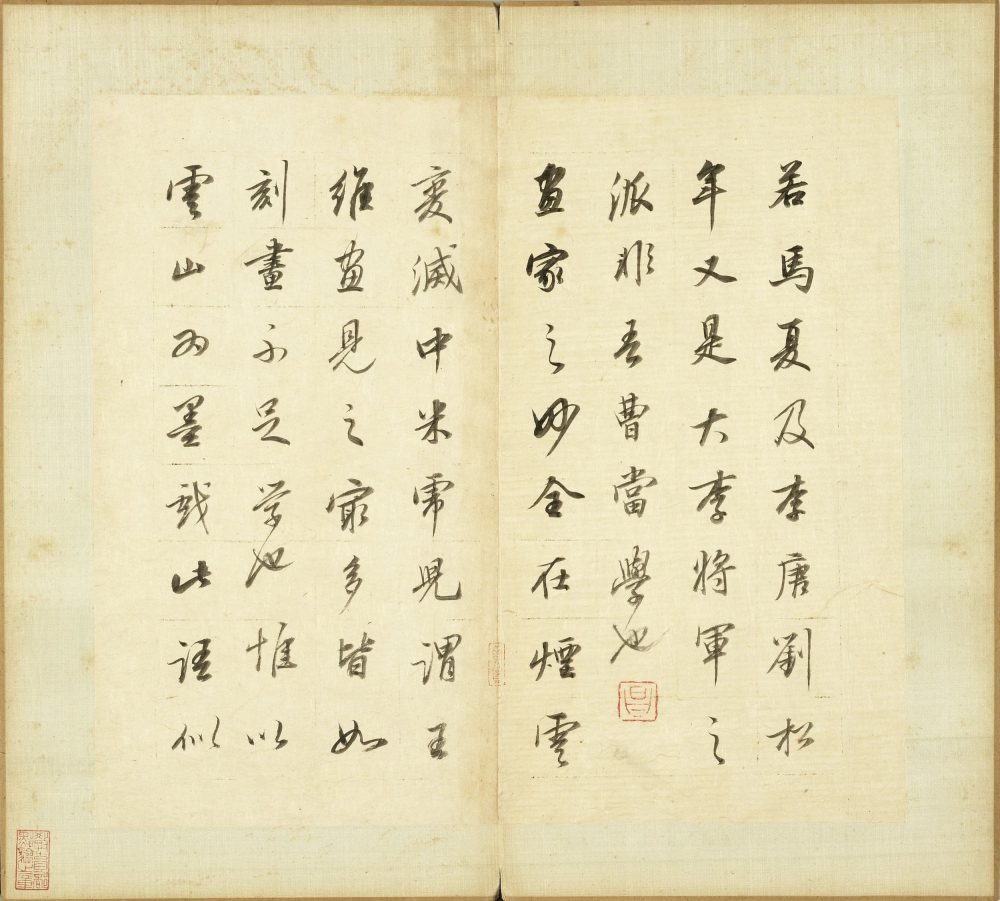 若馬夏及李唐劉松
年又是大李將軍之
派非吾曹當學也
畫家之妙全在煙雲
變滅中米虎兒謂王
維畫見之最多皆如
刻畫不足学也惟以
雲山為墨戲此語似